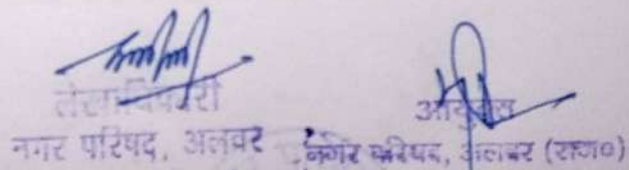 लेखाधिकारी
नगर परिषद, अलवर
आयुक्त
नगर परिषद, अलवर (राज०)